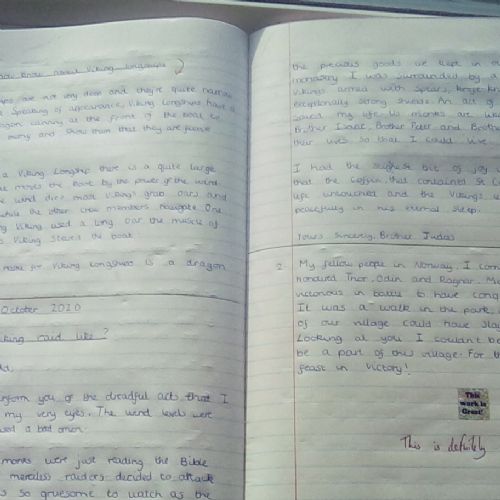 know about Viking longships
are not very deep and they're quite narrow
Speaking of appearance, Viking Longships have a
dragon carving at the front of the boat to
enemy and show them that they are fierce
a Viking Longship there is a quite large
that moves the boat by the power of the wind.
the wind dies most vikings grab oars and
while the other crew members navigate. One
Viking used a long oar the muscle of
Viking steers the boat.
name for Viking longships is a dragon
October 2020
Viking raid like?
inform you of the dreadful acts that I
my very eyes. The wind levels were
a bad omen.
monks were just reading the Bible
merciless raiders decided to attack
so gruesome to watch as the
the precious goods we kept in our
monastery I was surrounded by
Vikings armed with spears,
exceptionally strong swords. An act of
saved my life. Us monks are
Brother Isaac, Brother Peter and Brother
their lives so that I could live
I had the slightest bit of joy
that the coffin that contained St
left untouched and the Vikings
peacefully in his eternal sleep.
Yours Sincerely, Brother Judas
2. My fellow people in Norway, I come
honoured Thor, Odin and Ragnar.
victorious in battle to have
It was a walk in the park,
of our village could have
Looking at you I couldn't be
be a part of this village. For
feast in victory!
This
work is
Great!
This is definitely